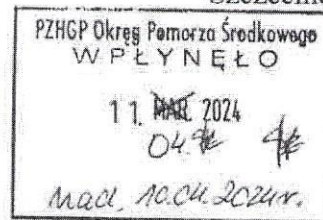 Szczecin
PZHGP Okręg Pomorza Środkowego
WPŁYNĘŁO
11. MAR. 2024
04.
nad. 10.04.2024r.